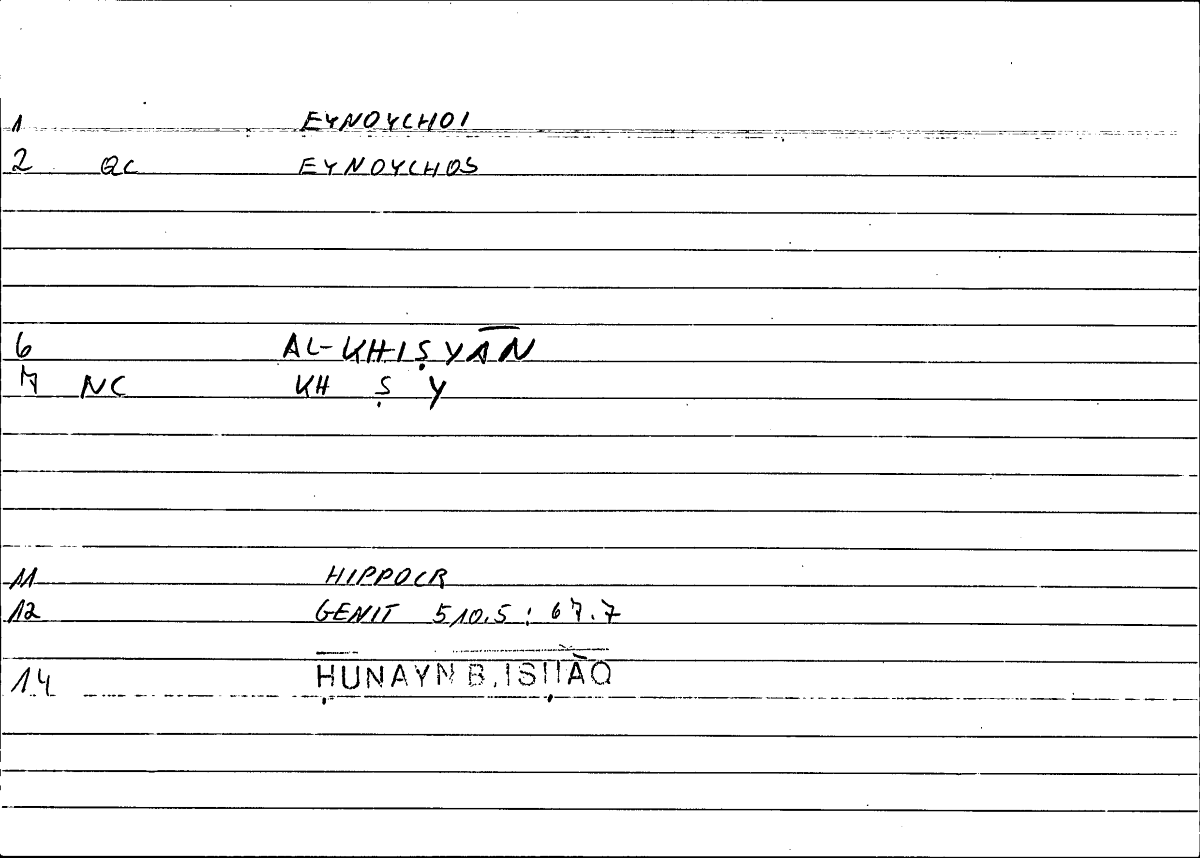 1 EYNOYCHOI
2 QC EYNOYCHOS
6 AL-KHIṢYĀN
7 NC KH Ṣ Y
11 HIPPOCR
12 GENIT 510.5 : 67.7
14 ḤUNAYN B. ISḤĀQ